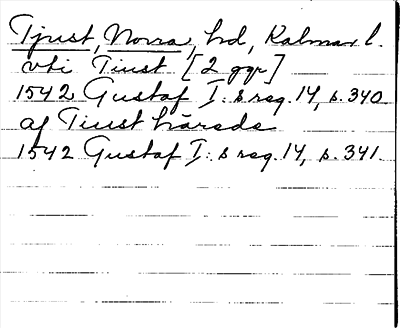 Tjust, Norra, hd, Kalmar l.
vti Tiust [2 ggr]
1542 Gustaf I:s reg. 14, s. 340
af Tiust härede
1542 Gustaf I:s reg. 14, s. 341.